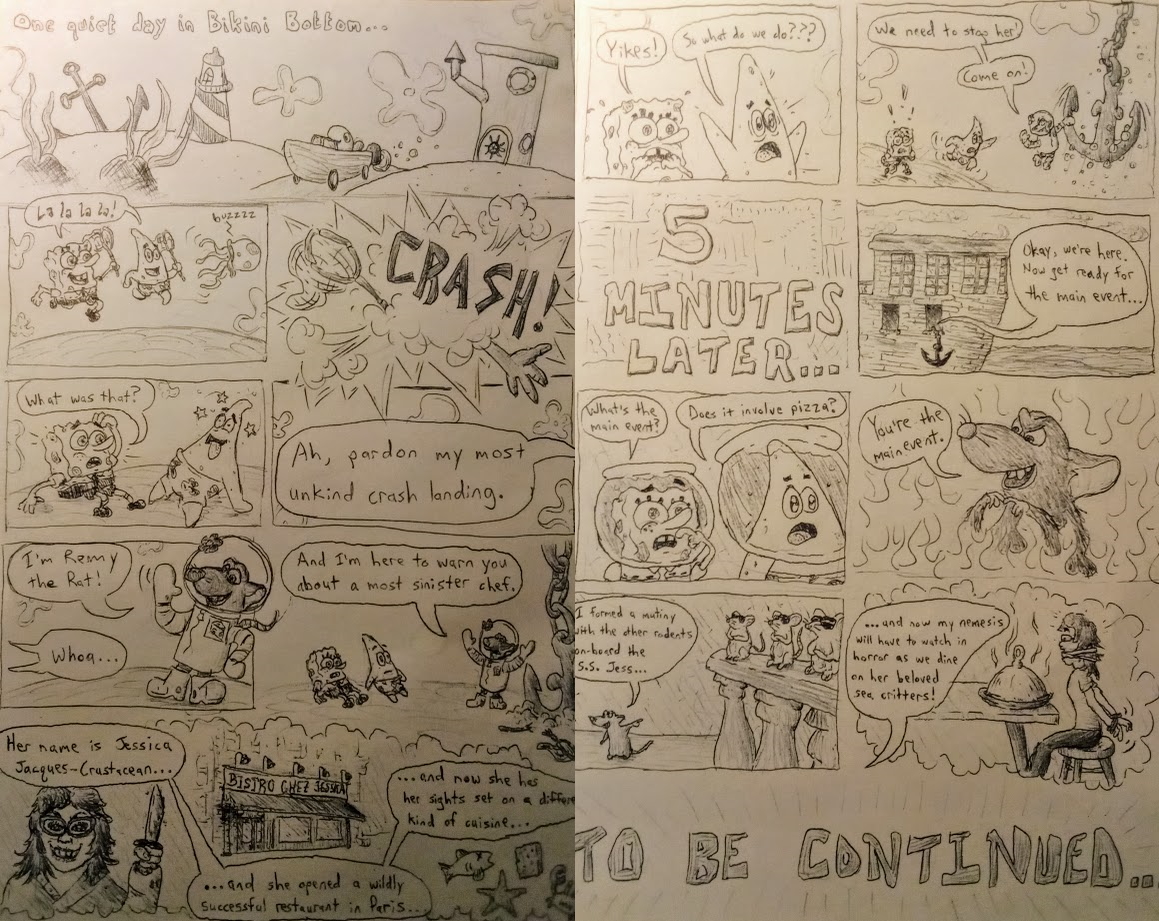 One quiet day in Bikini Bottom...
La la la la!
buzzzz
CRASH!
What was that?
Ah, pardon my most
unkind crash landing.
I'm Remy
the Rat!
Whoa...
And I'm here to warn you
about a most sinister chef.
Her name is Jessica
Jacques-Crustacean...
BISTRO CHEZ JESSICA
...and she opened a wildly
successful restaurant in Paris...
...and now she has
her sights set on a differe
kind of cuisine...
Yikes!
So what do we do???
We need to stop her!
Come on!
5
MINUTES
LATER...
Okay, we're here.
Now get ready for
the main event...
What's the
main event?
Does it involve pizza?
You're the
main event.
I formed a mutiny
with the other rodents
on-board the
S.S. Jess...
...and now my nemesis
will have to watch in
horror as we dine
on her beloved
sea critters!
TO BE CONTINUED...